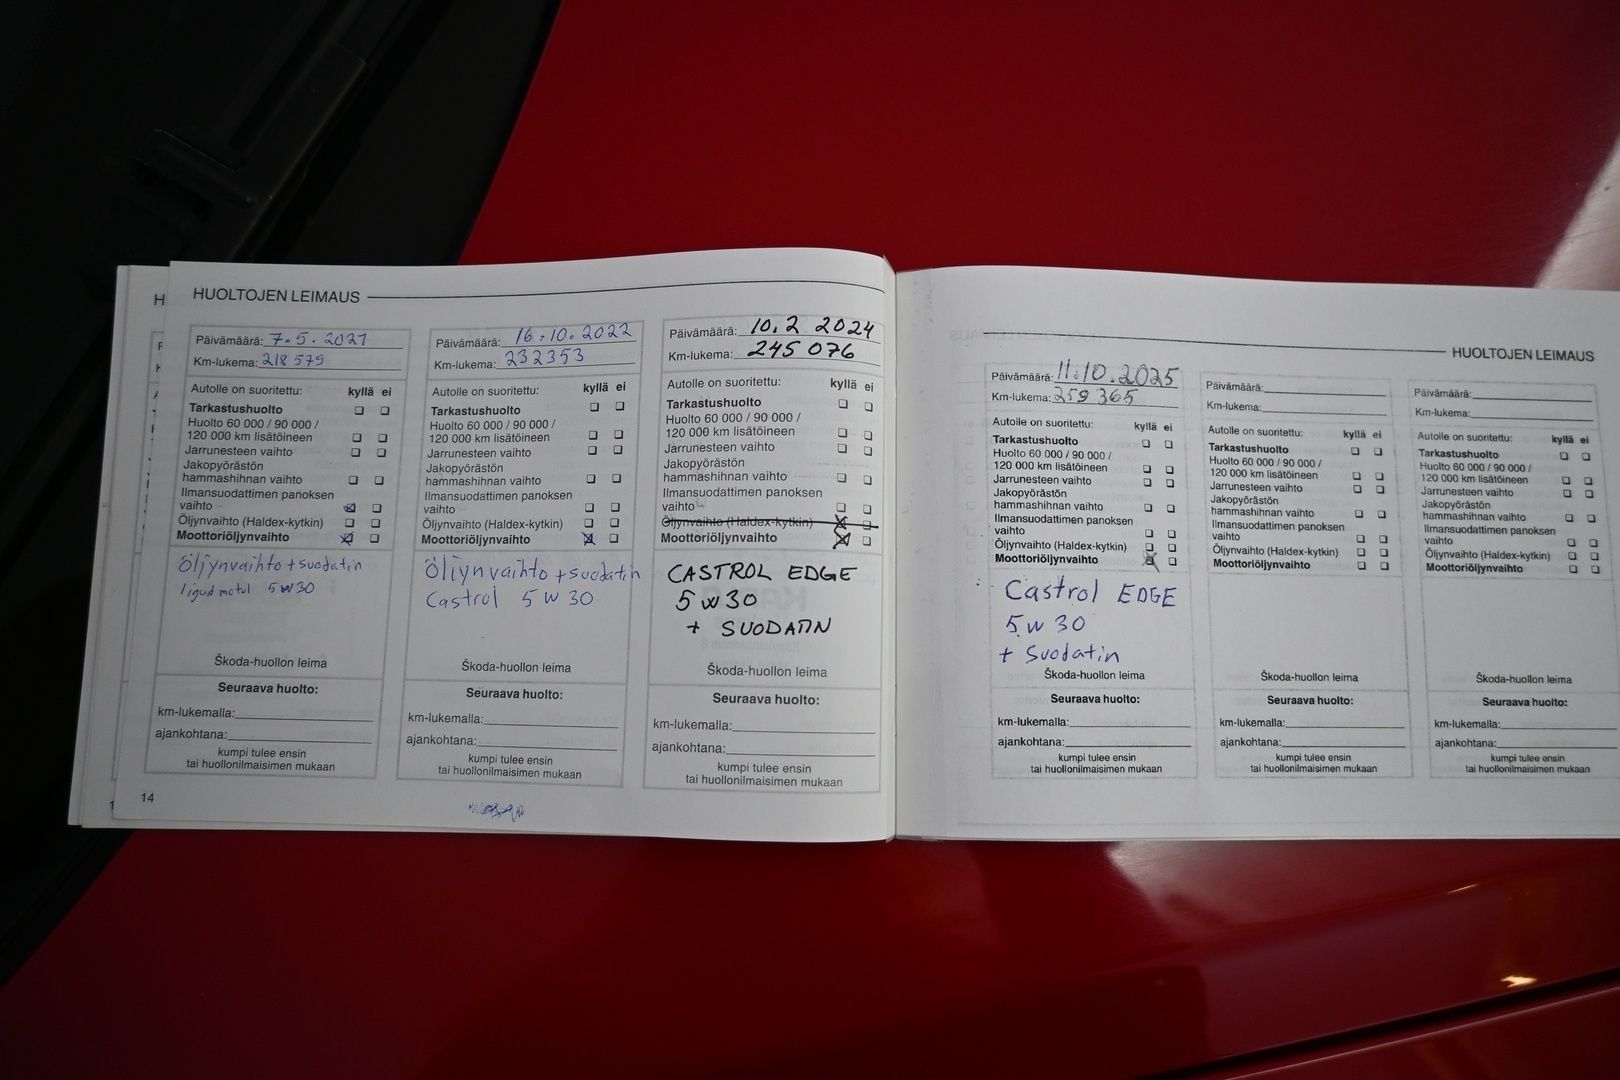 HUOLTOJEN LEIMAUS
Päivämäärä: 7.5.2021
Km-lukema: 218 579
Autolle on suoritettu: kyllä ei
Tarkastushuolto
Huolto 60 000 / 90 000 /
120 000 km lisätöineen
Jarrunesteen vaihto
Jakopyörästön
hammashihnan vaihto
Ilmansuodattimen panoksen
vaihto
Öljynvaihto (Haldex-kytkin)
Moottoriöljynvaihto
Öljynvaihto + suodatin
5W30
Škoda-huollon leima
Seuraava huolto:
km-lukemalla:
ajankohtana:
kumpi tulee ensin
tai huollonilmaisimen mukaan
14
Päivämäärä: 16.10.2022
Km-lukema: 232353
Autolle on suoritettu: kyllä ei
Tarkastushuolto
Huolto 60 000 / 90 000 /
120 000 km lisätöineen
Jarrunesteen vaihto
Jakopyörästön
hammashihnan vaihto
Ilmansuodattimen panoksen
vaihto
Öljynvaihto (Haldex-kytkin)
Moottoriöljynvaihto
Öljynvaihto + suodatin
Castrol 5W30
Škoda-huollon leima
Seuraava huolto:
km-lukemalla:
ajankohtana:
kumpi tulee ensin
tai huollonilmaisimen mukaan
Päivämäärä: 10.2 2024
Km-lukema: 245 076
Autolle on suoritettu: kyllä ei
Tarkastushuolto
Huolto 60 000 / 90 000 /
120 000 km lisätöineen
Jarrunesteen vaihto
Jakopyörästön
hammashihnan vaihto
Ilmansuodattimen panoksen
vaihto
Öljynvaihto (Haldex-kytkin)
Moottoriöljynvaihto
CASTROL EDGE
5W30
+ SUODATIN
Škoda-huollon leima
Seuraava huolto:
km-lukemalla:
ajankohtana:
kumpi tulee ensin
tai huollonilmaisimen mukaan
HUOLTOJEN LEIMAUS
Päivämäärä: 11.10.2025
Km-lukema: 259 365
Autolle on suoritettu: kyllä ei
Tarkastushuolto
Huolto 60 000 / 90 000 /
120 000 km lisätöineen
Jarrunesteen vaihto
Jakopyörästön
hammashihnan vaihto
Ilmansuodattimen panoksen
vaihto
Öljynvaihto (Haldex-kytkin)
Moottoriöljynvaihto
Castrol EDGE
5W30
+ suodatin
Škoda-huollon leima
Seuraava huolto:
km-lukemalla:
ajankohtana:
kumpi tulee ensin
tai huollonilmaisimen mukaan
Päivämäärä:
Km-lukema:
Autolle on suoritettu: kyllä ei
Tarkastushuolto
Huolto 60 000 / 90 000 /
120 000 km lisätöineen
Jarrunesteen vaihto
Jakopyörästön
hammashihnan vaihto
Ilmansuodattimen panoksen
vaihto
Öljynvaihto (Haldex-kytkin)
Moottoriöljynvaihto
Škoda-huollon leima
Seuraava huolto:
km-lukemalla:
ajankohtana:
kumpi tulee ensin
tai huollonilmaisimen mukaan
Päivämäärä:
Km-lukema:
Autolle on suoritettu: kyllä ei
Tarkastushuolto
Huolto 60 000 / 90 000 /
120 000 km lisätöineen
Jarrunesteen vaihto
Jakopyörästön
hammashihnan vaihto
Ilmansuodattimen panoksen
vaihto
Öljynvaihto (Haldex-kytkin)
Moottoriöljynvaihto
Škoda-huollon leima
Seuraava huolto:
km-lukemalla:
ajankohtana:
kumpi tulee ensin
tai huollonilmaisimen mukaan